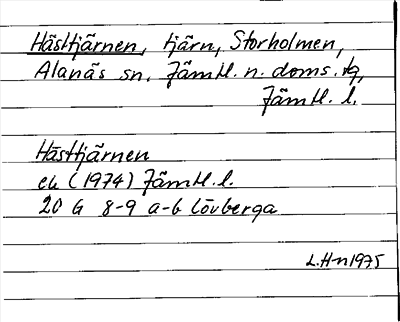 Hästtjärnen, tjärn, Storholmen,
Alanäs sn. Jämtl. n. doms. tg,
Jämtl. l.
Hästtjärnen
ek (1974) Jämtl. l.
20 G 8-9 a-b Lövberga
L.H-n 1975